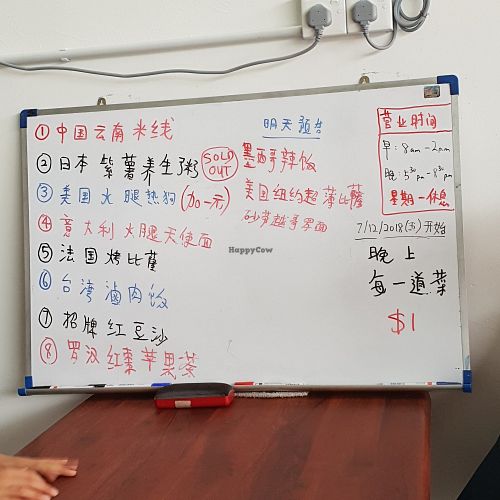 ① 中国云南米线
② 日本 紫薯养生粥 SOLD OUT
③ 美国火腿热狗 (加一元)
④ 意大利火腿天使面
⑤ 法国烤比薩
⑥ 台湾滷肉饭
⑦ 招牌红豆沙
⑧ 罗汉红棗苹果茶
明天预告
墨西哥辣饭
美国纽约超薄比薩
砂劳越哥罗面
营业时间
早: 8am - 2pm
晚: 5:30pm - 8:30pm
星期一休息
7/12/2018(五)开始
晚上
每一道菜
$1
HappyCow